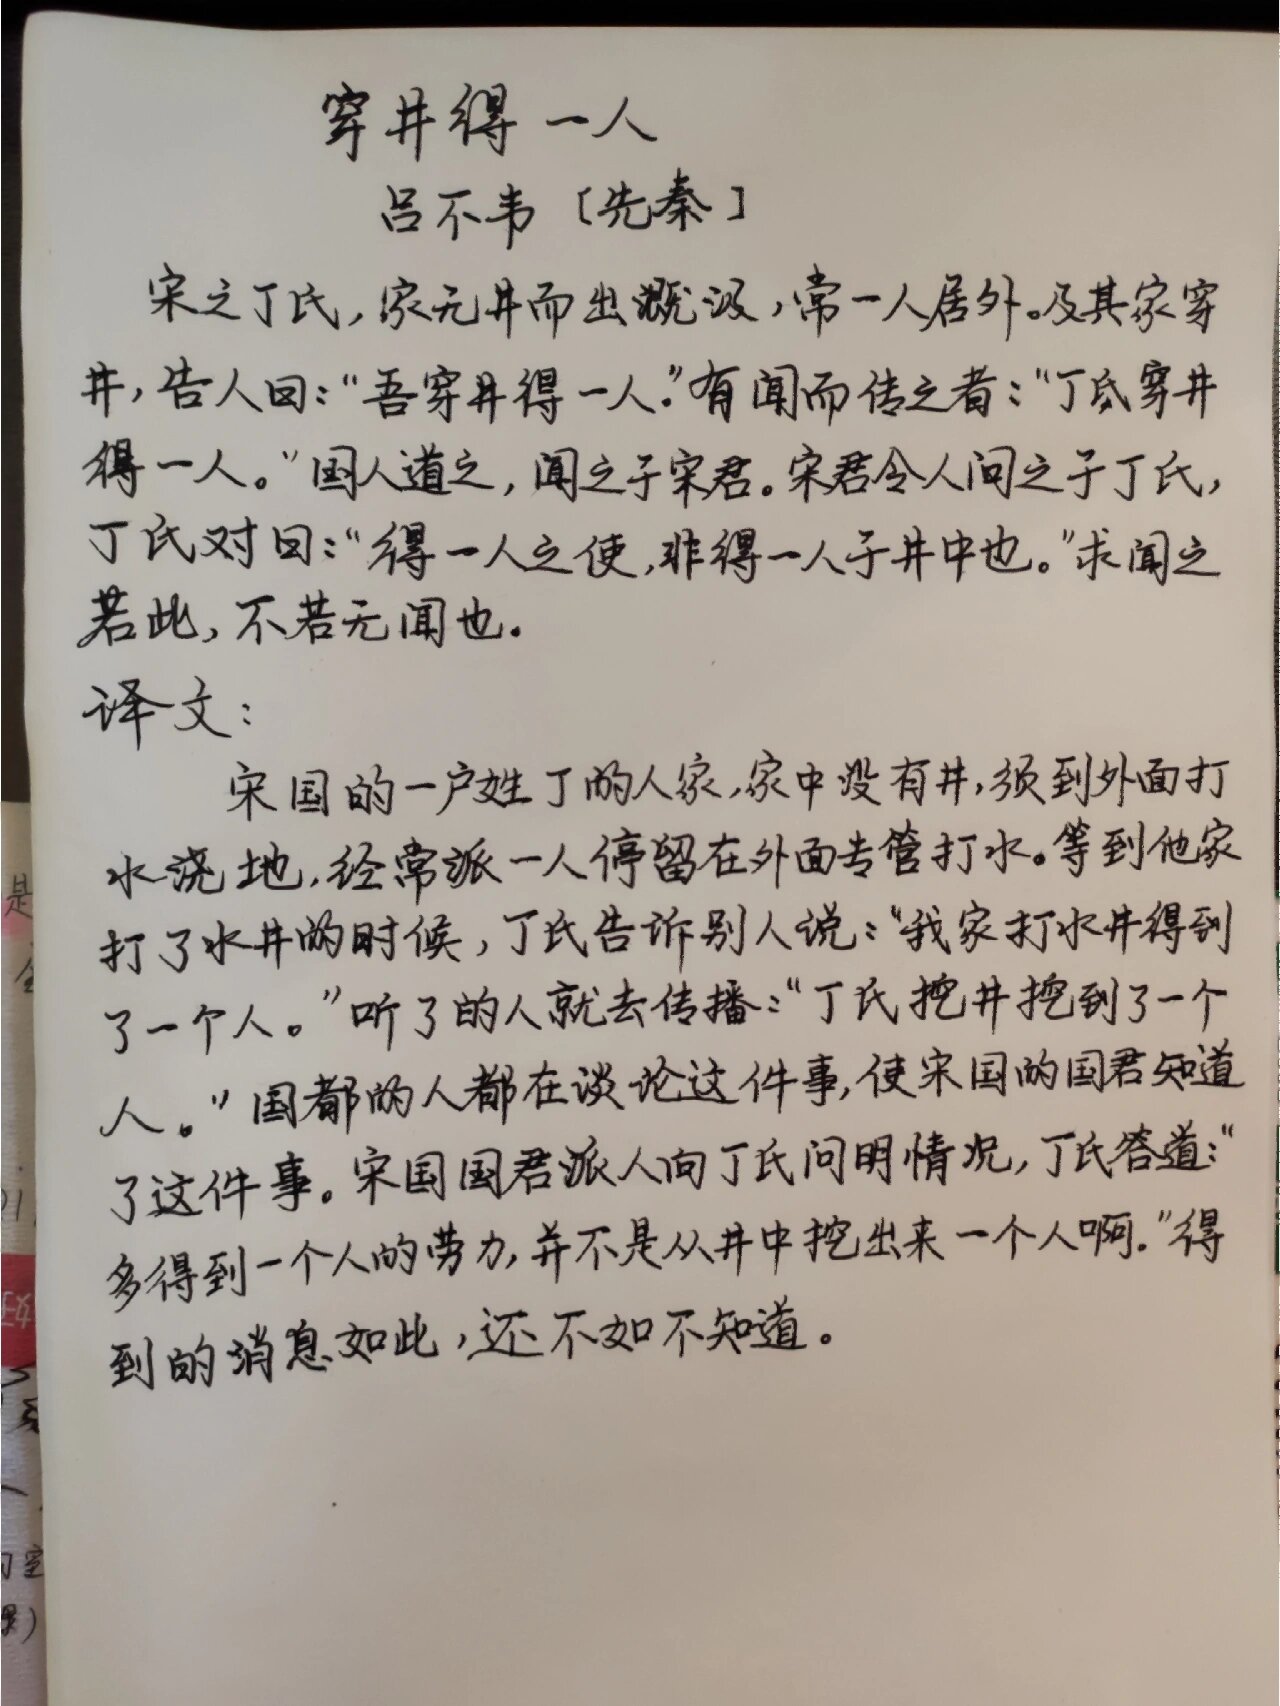 穿井得一人
吕不韦〔先秦〕
宋之丁氏，家无井而出溉汲，常一人居外。及其家穿
井，告人曰：“吾穿井得一人。”有闻而传之者：“丁氏穿井
得一人。”国人道之，闻之于宋君。宋君令人问之于丁氏，
丁氏对曰：“得一人之使，非得一人于井中也。”求闻之
若此，不若无闻也。
译文：
宋国的一户姓丁的人家，家中没有井，须到外面打
水浇地，经常派一人停留在外面专管打水。等到他家
打了水井的时候，丁氏告诉别人说：“我家打水井得到
了一个人。”听了的人就去传播：“丁氏挖井挖到了一个
人。”国都的人都在谈论这件事，使宋国的国君知道
了这件事。宋国国君派人向丁氏问明情况，丁氏答道：“
多得到一个人的劳力，并不是从井中挖出来一个人啊.”得
到的消息如此，还不如不知道。
是